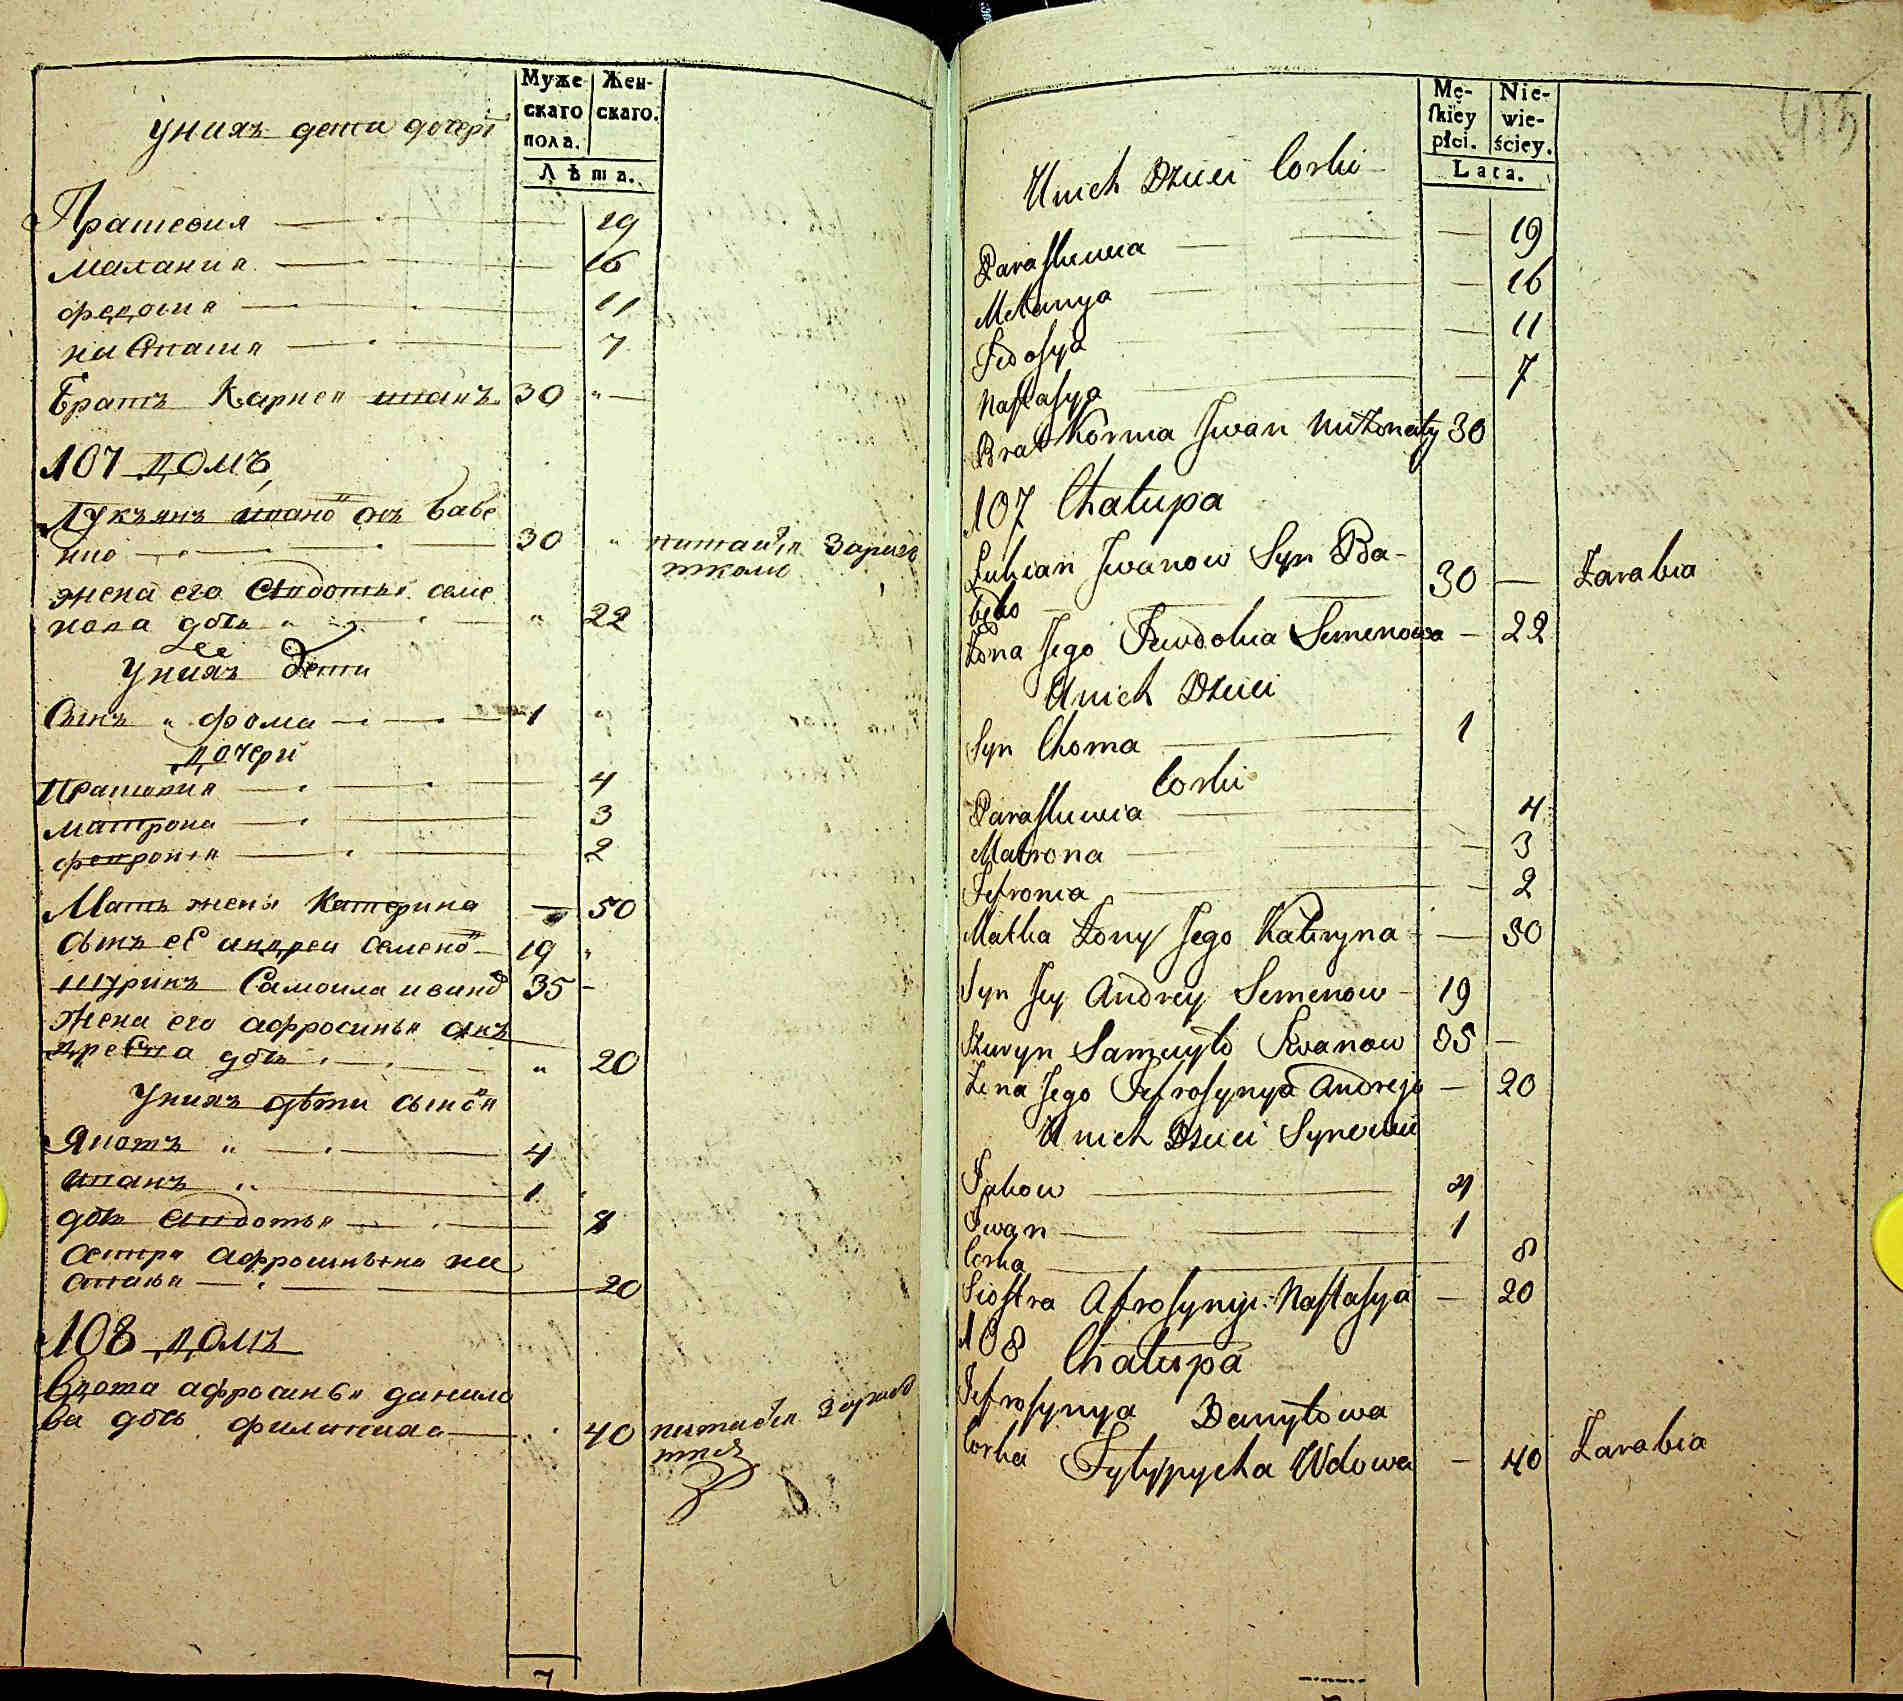 Муже-
скаго
пола.
Жен-
скаго.
Лѣта.
Униха дети дочери
Прасковия 19
Малания 16
Федосия 11
На Стасия 7
Братъ Карнея иванъ 30
107 домъ
Лукъянъ ивановъ снъ Бабе
нко 30 питается Зарабо
ткою
жена его Евдотья семе
нова дочь 22
Унихъ дети
Сынъ Фома 1
дочери
Прасковия 4
Матрона 3
Феврония 2
Мать жены Катерина 50
Сынъ её андрей семеновъ 19
шуринъ Самоила ивановъ 35
Жена его афросинья анъ
дреевна дочь 20
Унихъ дѣти сыновя
Яковъ 4
иванъ 1
дочь Евдотья 8
Сестра афросиньина на
стасья 20
108 домъ
Вдова афросинья данило
ва дочь филипиха 40 питается Зарабо
ткой
7
Mę-
skiey
płci.
Nie-
wie-
ściey.
Lata.
Unich Dzieci Corki
Paraskiewia 19
Melanya 16
Fedosya 11
Nastasya 7
Brat Kornia Jwan Nieżonaty 30
107 Chałupa
Łukian Jwanow Syn Ba-
beko 30 Zarabia
Żona Jego Jewdokia Semenowa 22
Unich Dzieci
Syn Choma 1
Corki
Paraskiewia 4
Matrona 3
Jefronia 2
Matka Żony Jego Kateryna 50
Syn Jey Andrey Semenow 19
Szuryn Samuyło Jwanow 35
Żena Jego Jefrosynya Andreja 20
Unich Dzieci Synowie
Jakow 4
Jwan 1
Corka 8
Siostra Afrosynyi Nastasya 20
108 Chałupa
Jefrosynya Danyłowa
Corka Fylypycha Wdowa 40 Zarabia